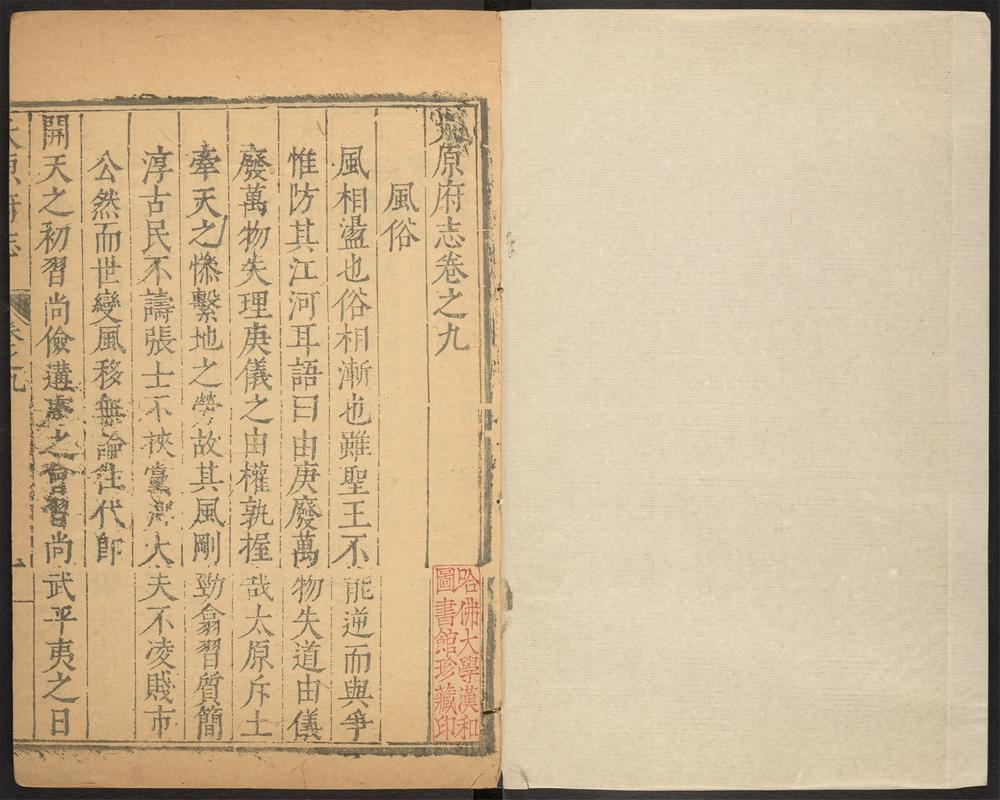 太原府志卷之九
風俗
風相盪也俗相漸也雖聖王不能逆而與爭
惟防其江河耳語曰由庚廢萬物失道由儀
廢萬物失理庚儀之由權孰握哉太原斥土
牽天之慘繫地之勞故其風剛勁翕習質簡
淳古民不譸張士不挾 大夫不凌賤市
公然而世變風移無論往代即
開天之初習尚儉遘 之會習尚武平夷之日
太原府志 卷之九 一
哈佛大學漢和
圖書館珍藏印